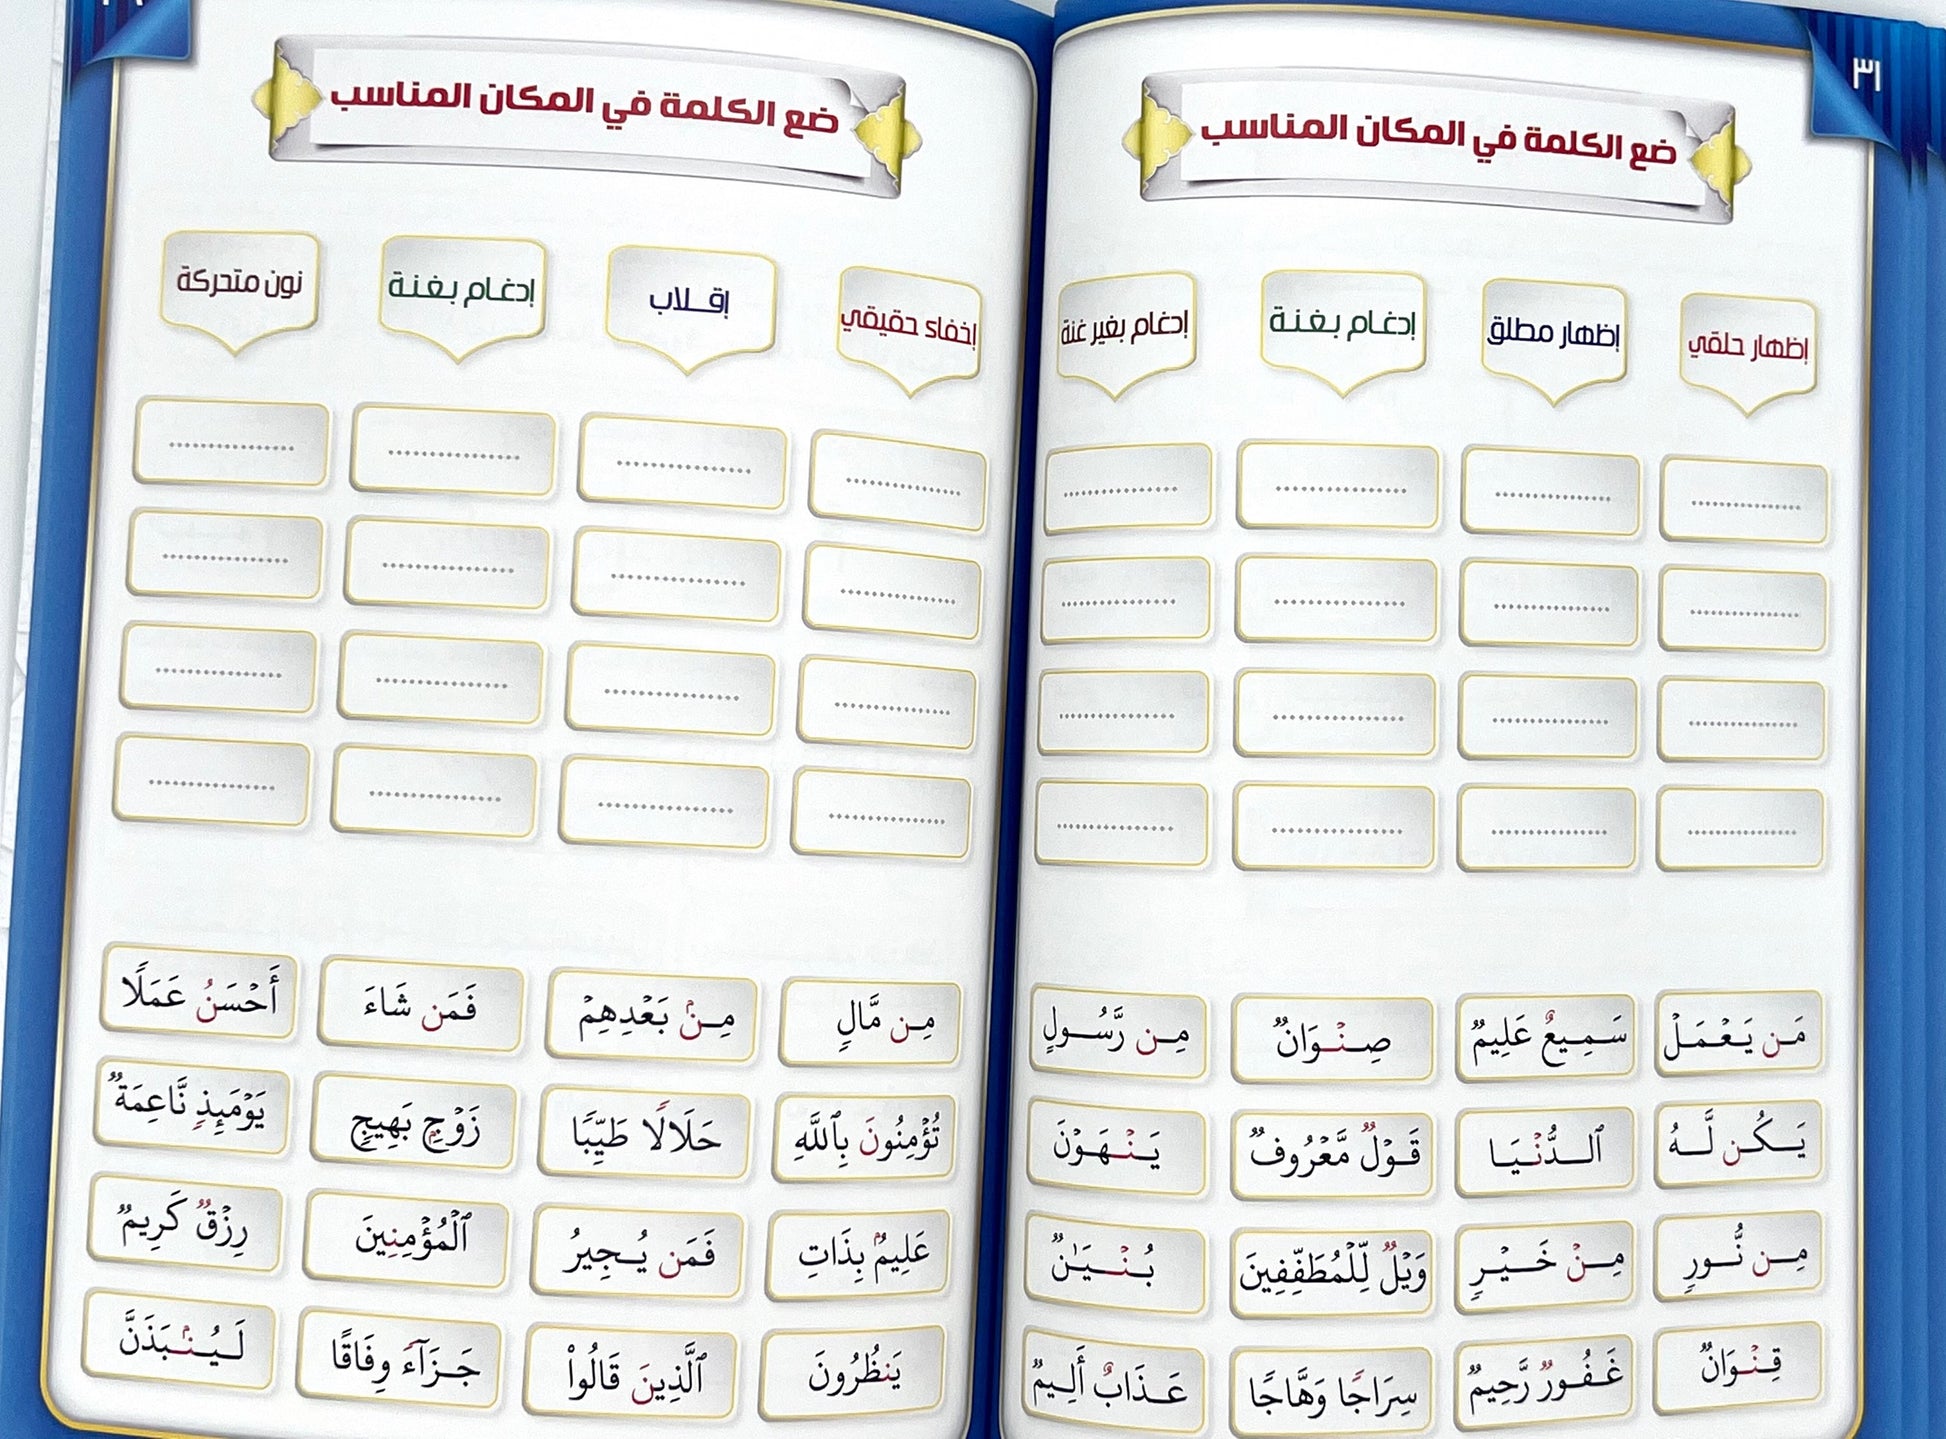 ٣١
ضع الكلمة في المكان المناسب
إظهار حلقي
إظهار مطلق
إدغام بغنة
إدغام بغير غنة
مَن يَـعْـمَـلْ
سَـمِـيعٌ عَلِيمٌ
صِـنْـوَانٌ
مِـن رَّسُـولٍ
يَـكُـن لَّـهُ
ٱلـدُّنْـيَـا
قَـوْلٌ مَّعْرُوفٌ
يَـنْـهَـوْنَ
مِـن نُّـورٍ
مِـنْ خَـيْـرٍ
وَيْلٌ لِّلْمُطَفِّفِينَ
بُـنْـيَـٰنٌ
قِـنْـوَانٌ
غَـفُـورٌ رَّحِيمٌ
سِرَاجًا وَهَّاجًا
عَـذَابٌ أَلِـيمٌ
ضع الكلمة في المكان المناسب
إخفاء حقيقي
إقـلاب
إدغام بغنة
نون متحركة
مِـن مَّالٍ
مِـنۢ بَعْدِهِمْ
فَمَن شَاءَ
أَحْسَنُ عَمَلًا
تُؤْمِنُونَ بِٱللَّهِ
حَلَالًا طَيِّبًا
زَوْجٍ بَهِيجٍ
يَوْمَئِذٍ نَّاعِمَةٌ
عَلِيمٌ بِذَاتِ
فَمَن يُـجِيرُ
ٱلْمُؤْمِنِينَ
رِزْقٌ كَرِيمٌ
يَنظُرُونَ
ٱلَّذِينَ قَالُواْ
جَـزَآءً وِفَاقًا
لَـيُـنۢـبَذَنَّ